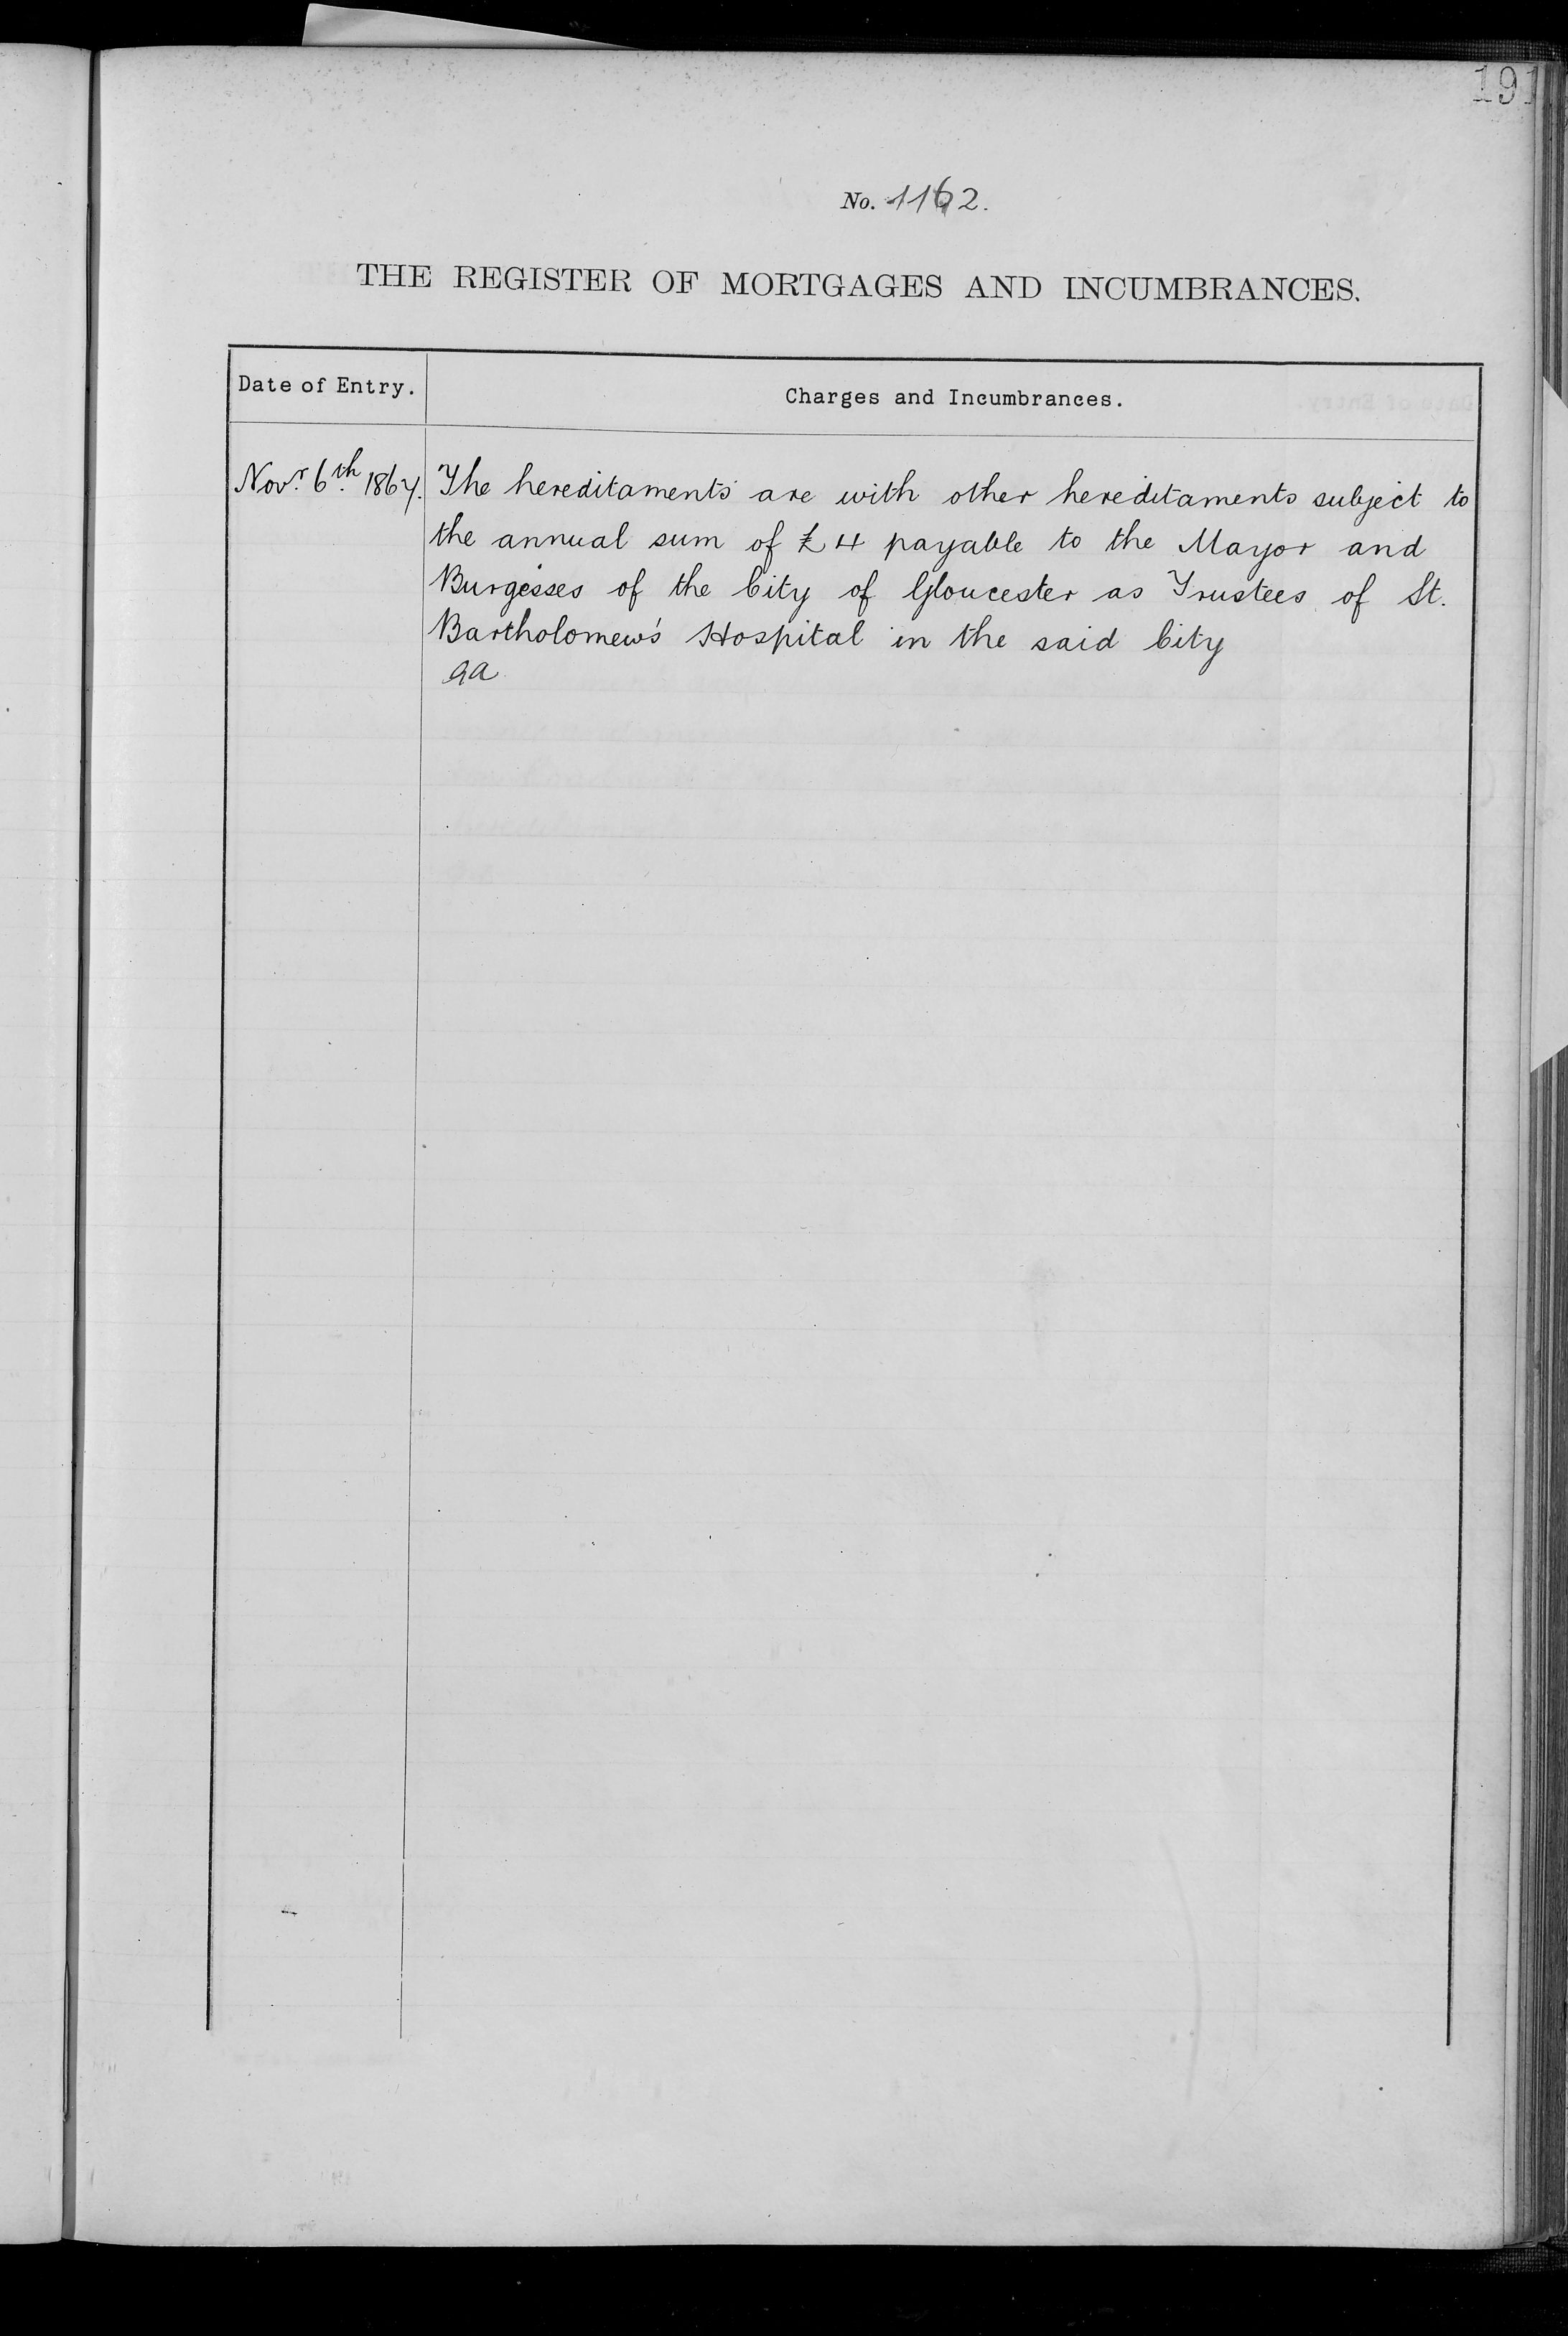 191
No. 1162.
THE REGISTER OF MORTGAGES AND INCUMBRANCES.
Date of Entry.
Charges and Incumbrances.
Novr. 6th. 1867.
The hereditaments are with other hereditaments subject to
the annual sum of £4 payable to the Mayor and
Burgesses of the City of Gloucester as Trustees of St.
Bartholomew's Hospital in the said City